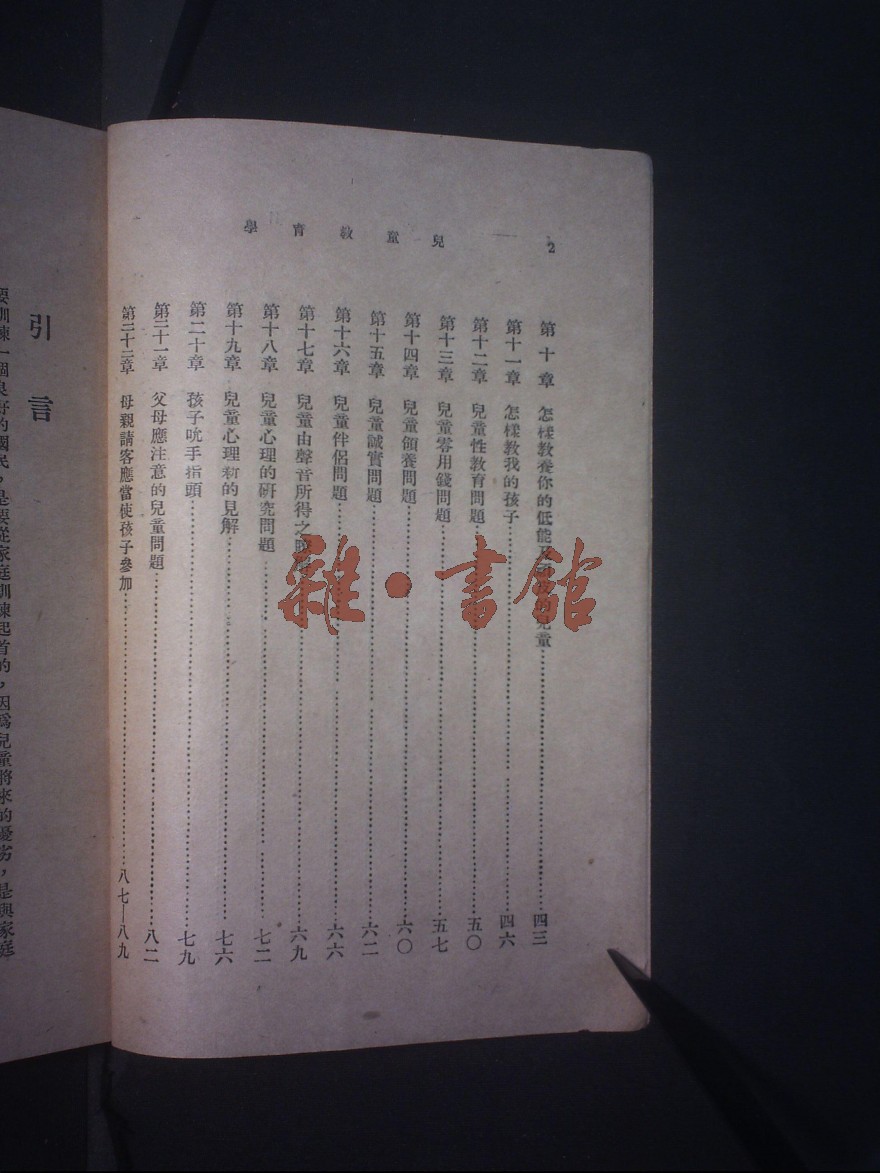 2 兒童教育學
第十章 怎樣教養你的低能及 兒童 四三
第十一章 怎樣教我的孩子 四六
第十二章 兒童性教育問題 五〇
第十三章 兒童零用錢問題 五七
第十四章 兒童領養問題 六〇
第十五章 兒童誠實問題 六二
第十六章 兒童伴侶問題 六六
第十七章 兒童由聲音所得之 六九
第十八章 兒童心理的研究問題 七二
第十九章 兒童心理新的見解 七六
第二十章 孩子吮手指頭 七九
第二十一章 父母應注意的兒童問題 八二
第二十二章 母親請客應當使孩子參加 八七—八九
雜·書館
引言
要訓練一個良好的國民，是要從家庭訓練起首的，因爲兒童將來的優劣，是與家庭